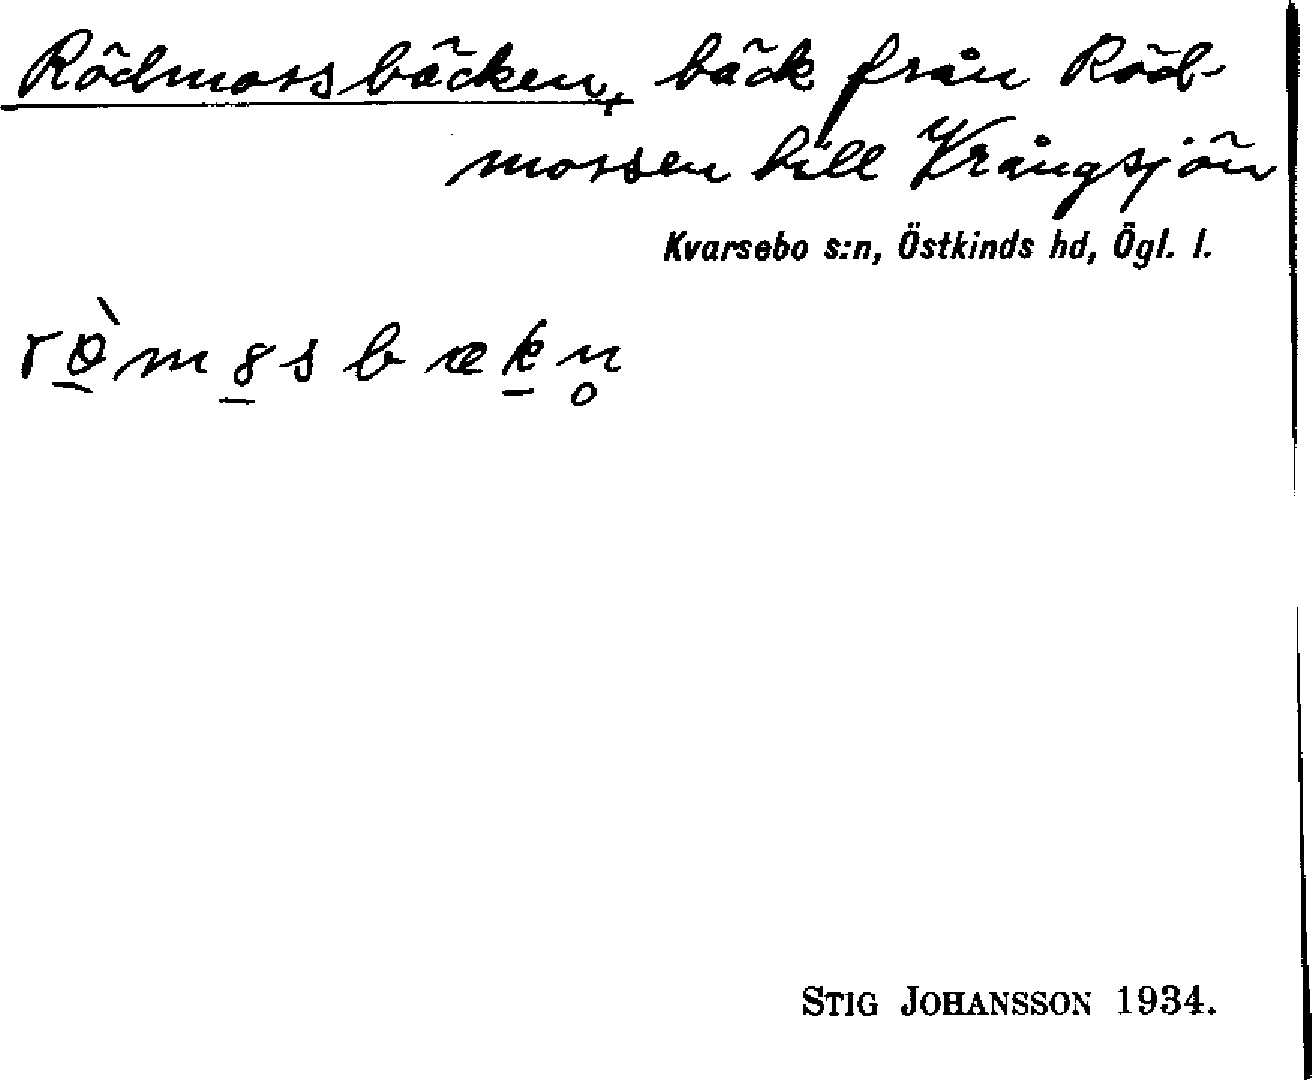 Rödmossbäcken, bäck från Röd-
mossen till Vrångsjön
Kvarsebo s:n, Östkinds hd, Ögl. l.
STIG JOHANSSON 1934.